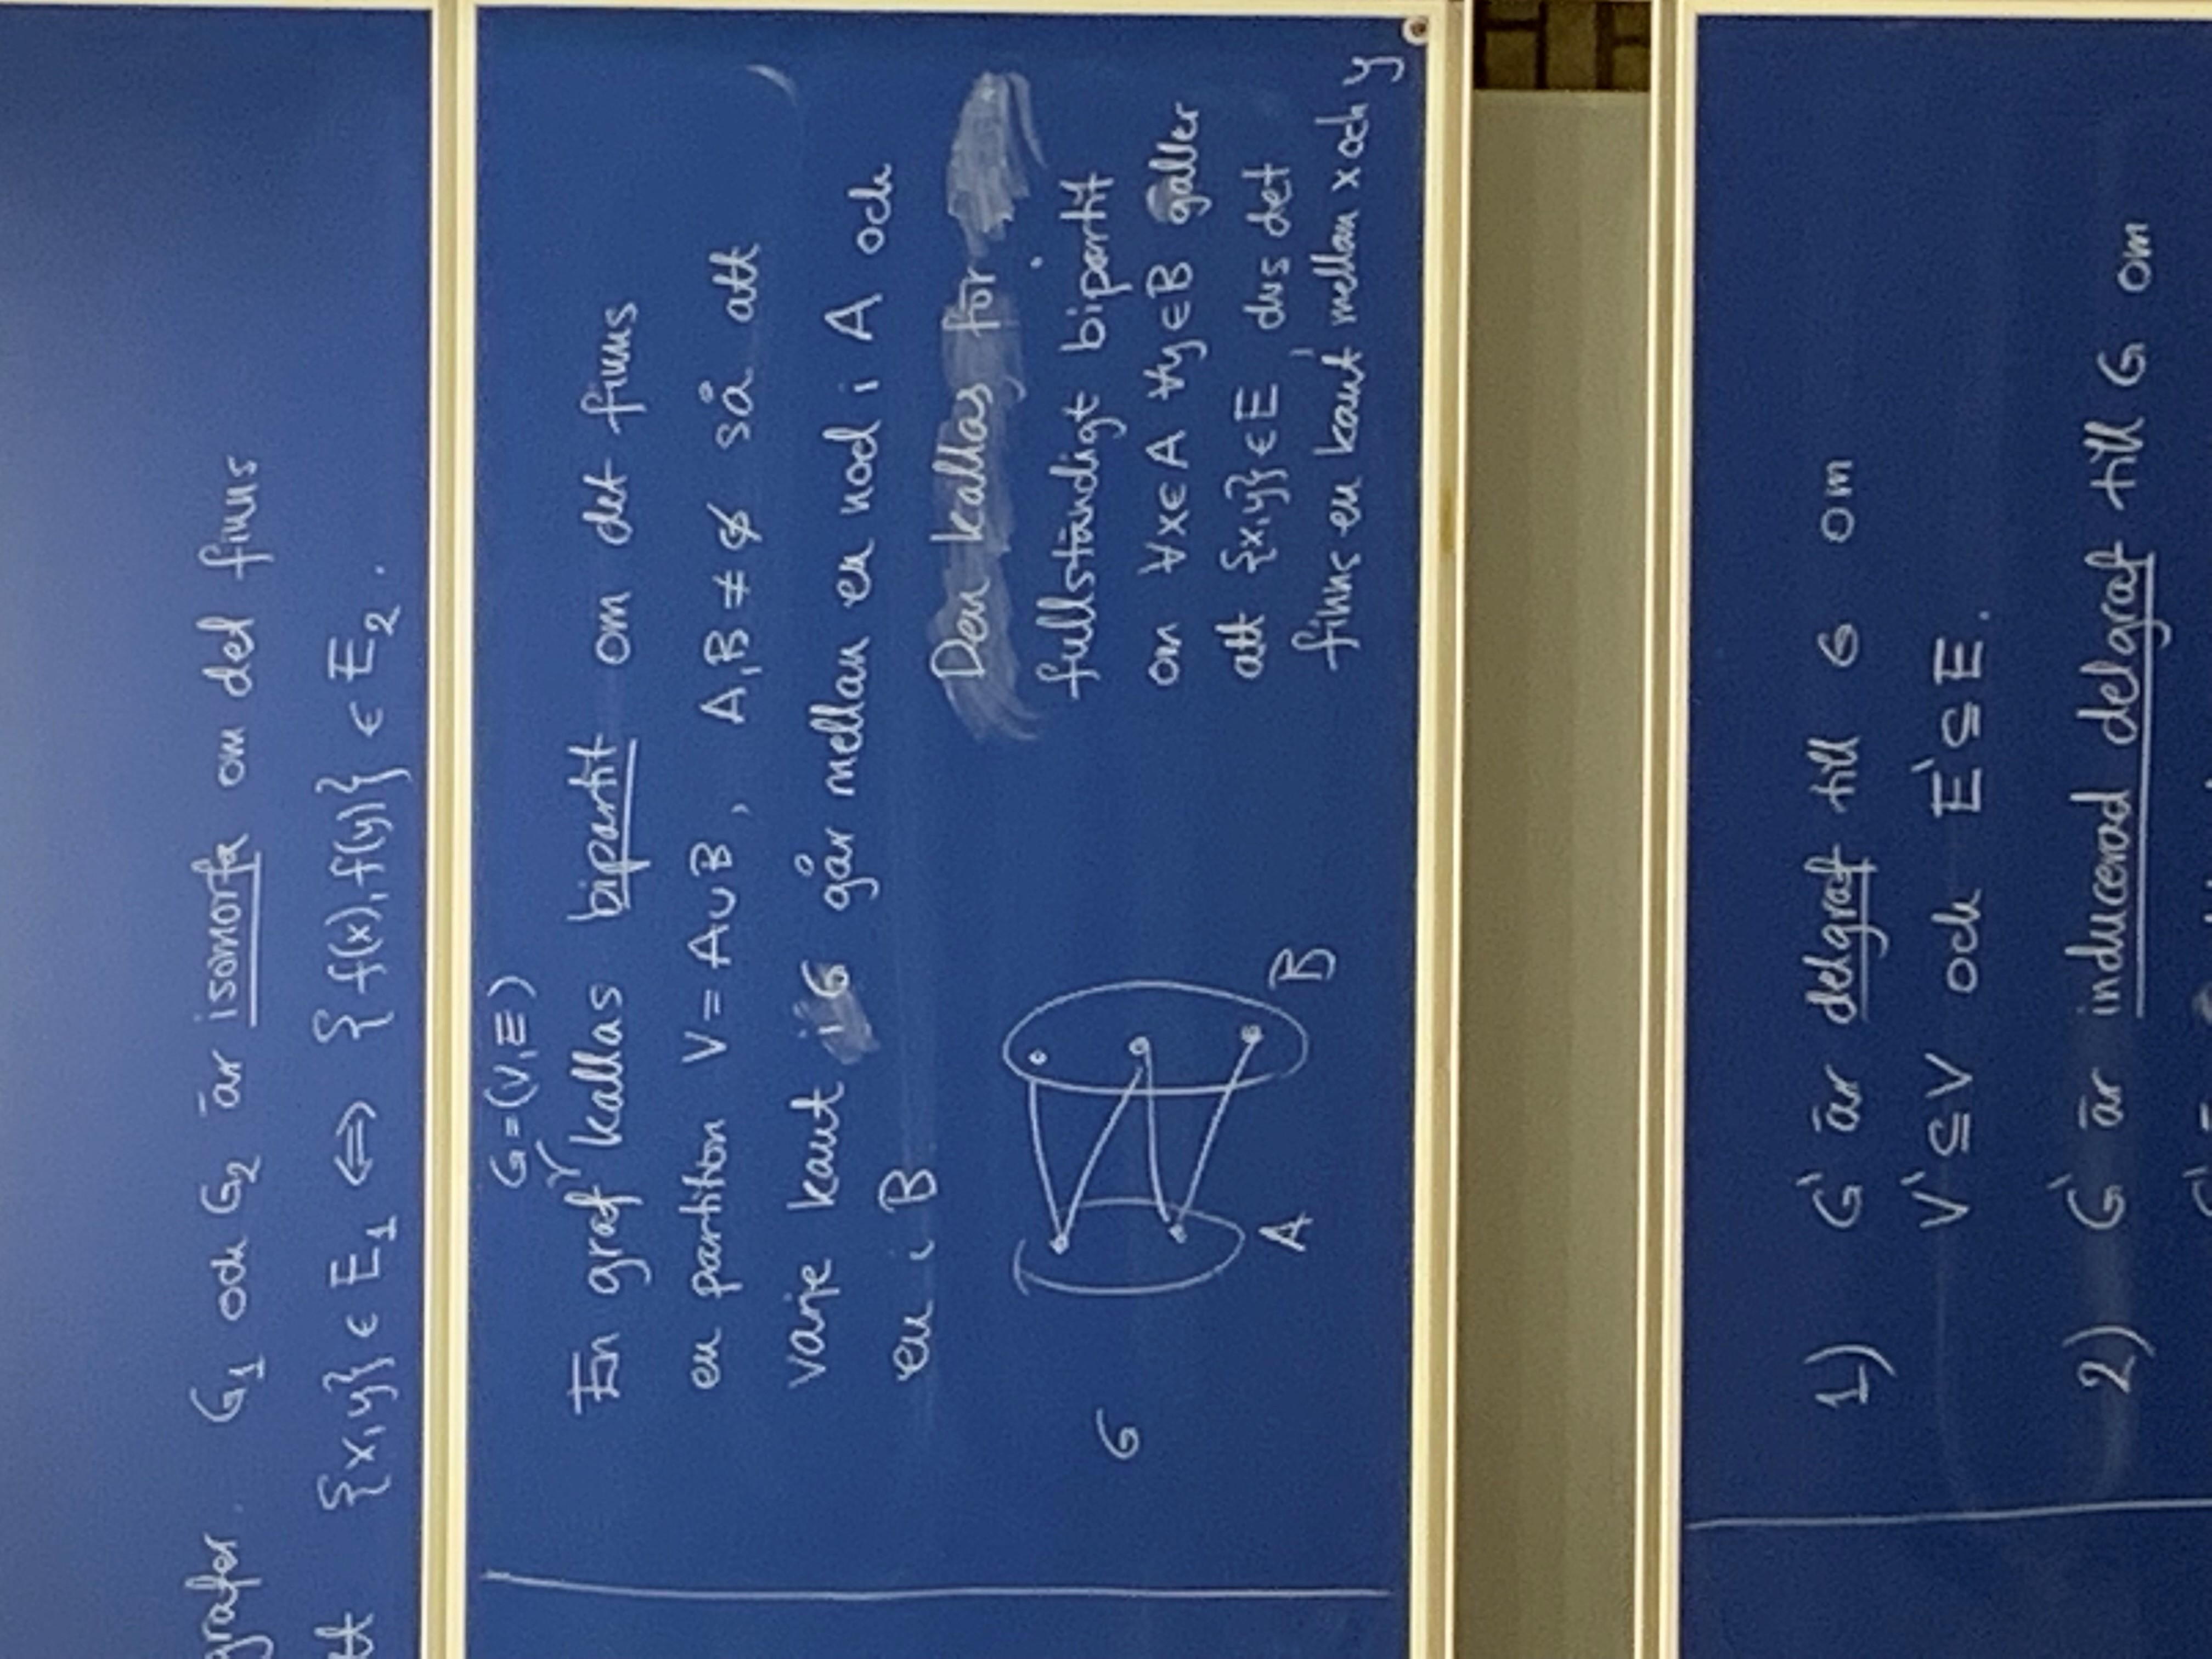 grafer. G₁ och G₂ är isomorfa om det finns
tt {x,y} ∈ E₁ ⇔ {f(x), f(y)} ∈ E₂.
G=(V,E)
En graf kallas bipartit om det finns
en partition V = A∪B, A,B ≠ ∅ så att
varje kant i G går mellan en nod i A och
en i B
Den kallas för
fullständigt bipartit
om ∀x∈A ∀y∈B gäller
att {x,y}∈E dvs det
finns en kant mellan x och y
G
A
B
1) G' är delgraf till G om
V'⊆V och E'⊆E.
2) G' är inducerad delgraf till G om